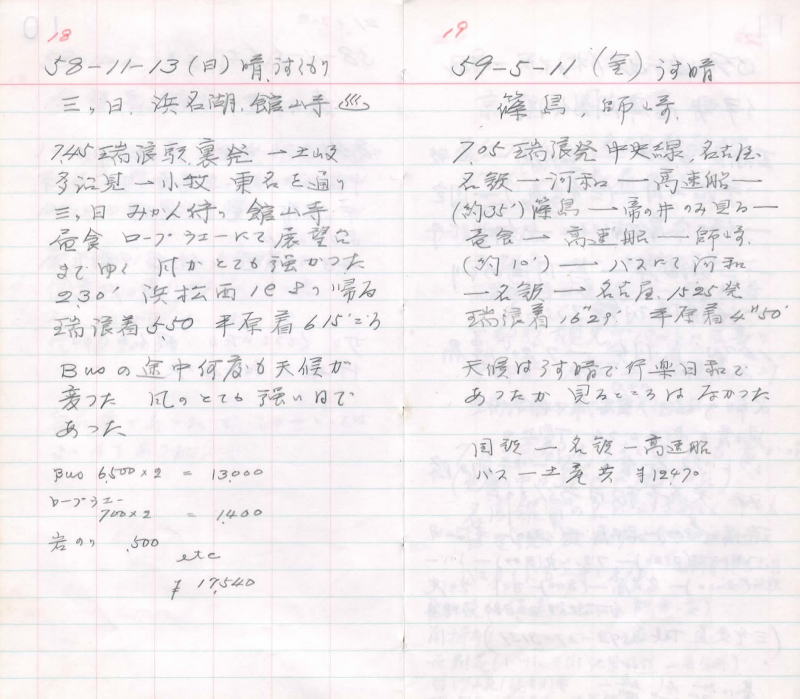 18
58-11-13(日)晴,うすくもり
三ヶ日、浜名湖、館山寺♨
7.45 瑞浪駅裏発 ー土岐
多治見ー小牧 東名を通り
三ヶ日 みかん狩り 館山寺
昼食 ロープウエーにて展望台
までゆく 風がとても強かつた
2.30' 浜松西ICより帰る
瑞浪着5.50 平原着6.15'ごろ
Busの途中何度も天候が
変つた 風のとても強い日で
あつた
Bus 6,500×2 = 13,000
ロープウエー
700×2 = 1,400
岩のり .500
etc
¥ 17,540
19
59-5-11(金)うす晴
篠島、師崎
7.05 瑞浪発 中央線、名古屋
名鉄ー河和ー高速船ー
(約35')篠島ー帝の井のみ見るー
昼食ー高速船ー師崎
(約10')ーバスにて河和
ー名鉄ー名古屋、15.25発
瑞浪着16"29' 平原着4"50'
天候はうす晴で行楽日和で
あつたが 見るところは なかつた
国鉄ー名鉄ー高速船
バスー土産共 ¥12470